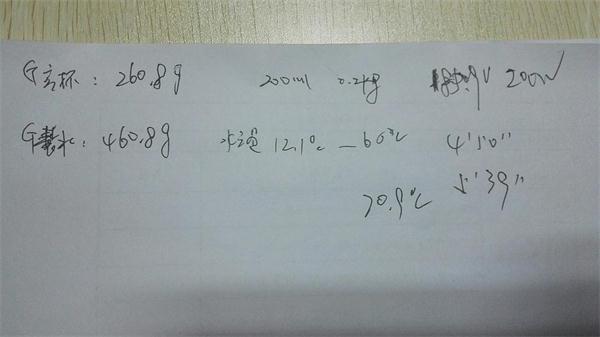 G空杯：260.8g 200ml 0.2kg 200W
G装水：460.8g 水温12.1℃—60℃ 4'50"
70.9℃ 5'39"